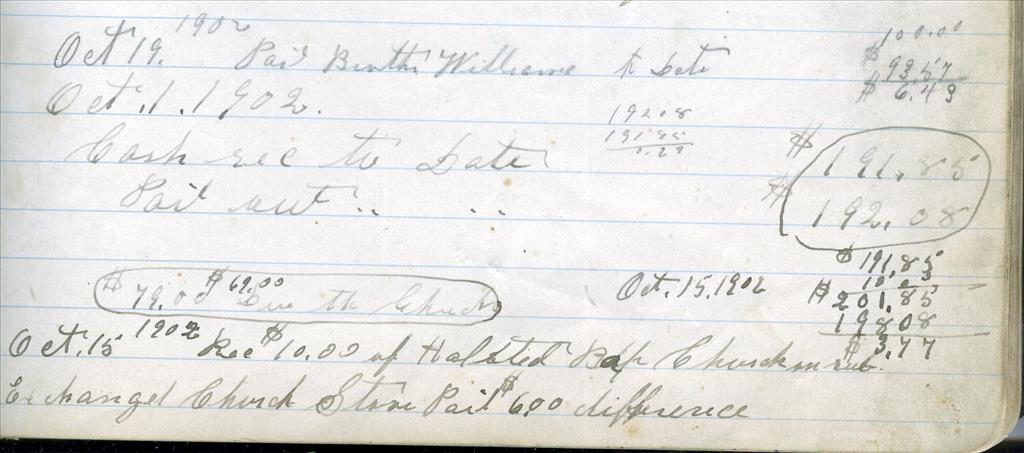 1902
Oct 19. Paid Brother Williams to Date
$ 100.00
$ 93.57
$ 6.43
Oct. 1. 1902.
192.08
191.85
0.23
Cash rec to Date
$ 191.85
Paid out " "
$ 192.08
$ 191.85
10.00
$ 201.85
198.08
$ 3.77
Oct. 15. 1902
$ 69.00
$ 79.00 Due the Church
Oct. 15 1902 Rec $ 10.00 of Halsted Bap Church on sub.
Exchanged Church Stove Paid $ 6.00 difference